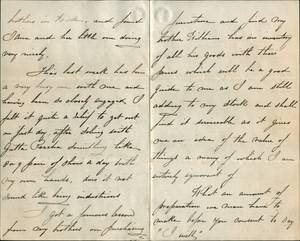 brothers in and found
Sam and his little one doing
very nicely.
This last week has been
a very busy one with me and
having been so closely engaged I
felt it quite a relief to get out
on just day after dealing with
Gutta Percha
a pair of shoes a day with
my own hands, does it not
sound like being industrious?
I got a famous lesson
from my brother on purchasing
furniture and find my
brother Nathans has an inventory
of all his goods with their
prices which will be a good
guide to me as I am still
adding to my stock and shall
find it serviceable as it gives
me an idea of the value of
things a many of which I am
entirely ignorant of.
What an amount of
preparation we men have to
make before you consent to say
"I will"